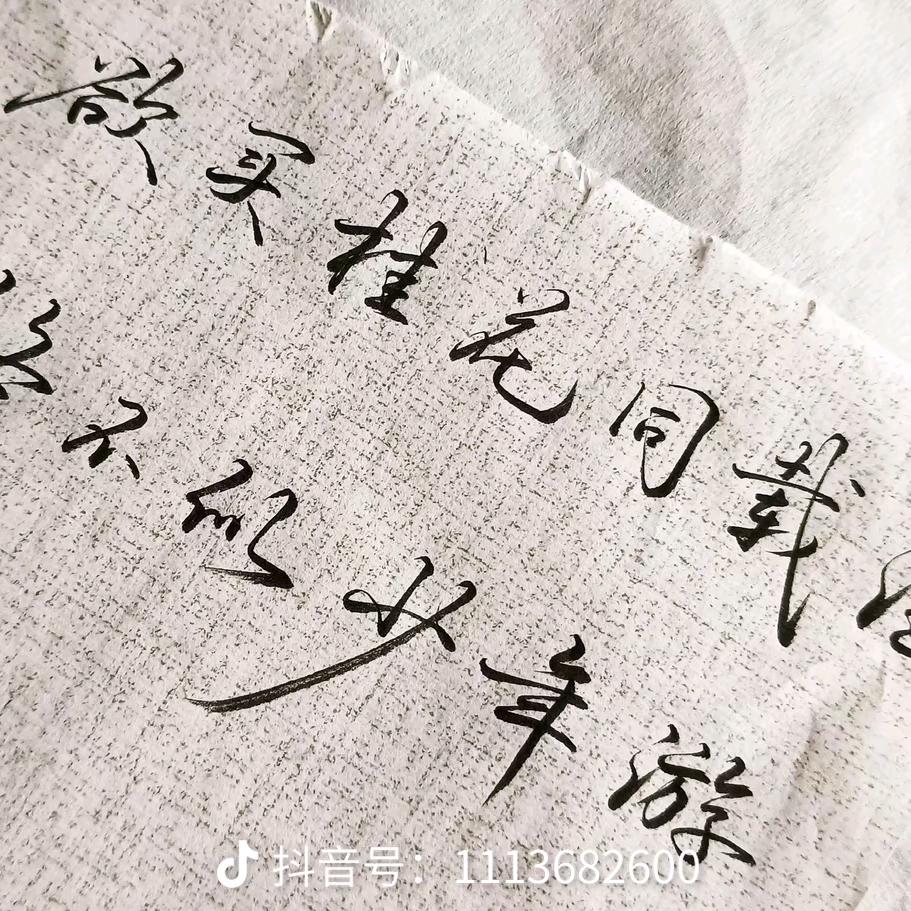 欲买桂花同载酒
终不似少年游
抖音号：1113682600